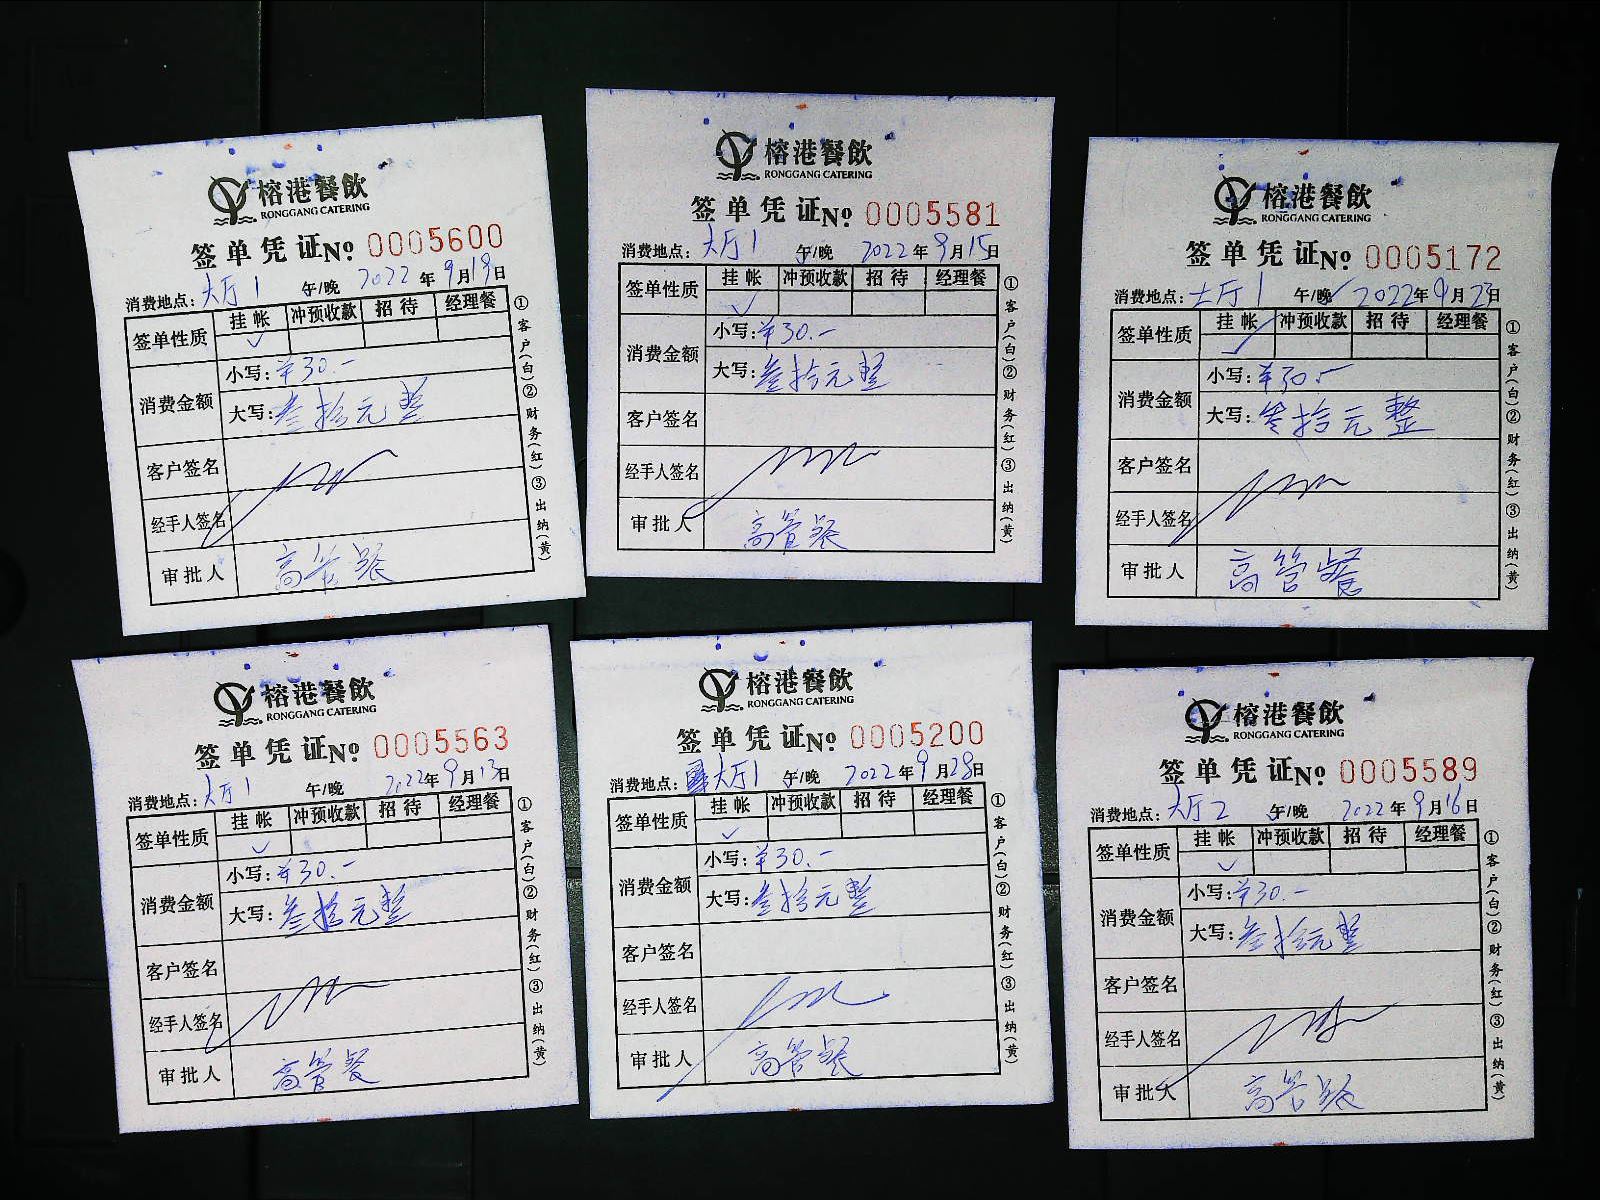 榕港餐飲
RONGGANG CATERING
签单凭证№ 0005600
消费地点：大厅1 午/晚 2022年9月19日
签单性质 挂帐 冲预收款 招待 经理餐
✓
消费金额 小写：￥30.-
大写：叁拾元整
客户签名
经手人签名
审批人 高管餐
①客户(白)②财务(红)③出纳(黄)
榕港餐飲
RONGGANG CATERING
签单凭证№ 0005581
消费地点：大厅1 午/晚 2022年9月15日
签单性质 挂帐 冲预收款 招待 经理餐
✓
消费金额 小写：￥30.-
大写：叁拾元整
客户签名
经手人签名
审批人 高管餐
①客户(白)②财务(红)③出纳(黄)
榕港餐飲
RONGGANG CATERING
签单凭证№ 0005172
消费地点：大厅1 午/晚 2022年9月23日
签单性质 挂帐 冲预收款 招待 经理餐
✓
消费金额 小写：￥30.-
大写：叁拾元整
客户签名
经手人签名
审批人 高管餐
①客户(白)②财务(红)③出纳(黄)
榕港餐飲
RONGGANG CATERING
签单凭证№ 0005563
消费地点：大厅1 午/晚 2022年9月13日
签单性质 挂帐 冲预收款 招待 经理餐
✓
消费金额 小写：￥30.-
大写：叁拾元整
客户签名
经手人签名
审批人 高管餐
①客户(白)②财务(红)③出纳(黄)
榕港餐飲
RONGGANG CATERING
签单凭证№ 0005200
消费地点：大厅1 午/晚 2022年9月28日
签单性质 挂帐 冲预收款 招待 经理餐
✓
消费金额 小写：￥30.-
大写：叁拾元整
客户签名
经手人签名
审批人 高管餐
①客户(白)②财务(红)③出纳(黄)
榕港餐飲
RONGGANG CATERING
签单凭证№ 0005589
消费地点：大厅2 午/晚 2022年9月16日
签单性质 挂帐 冲预收款 招待 经理餐
✓
消费金额 小写：￥30.-
大写：叁拾元整
客户签名
经手人签名
审批人 高管餐
①客户(白)②财务(红)③出纳(黄)